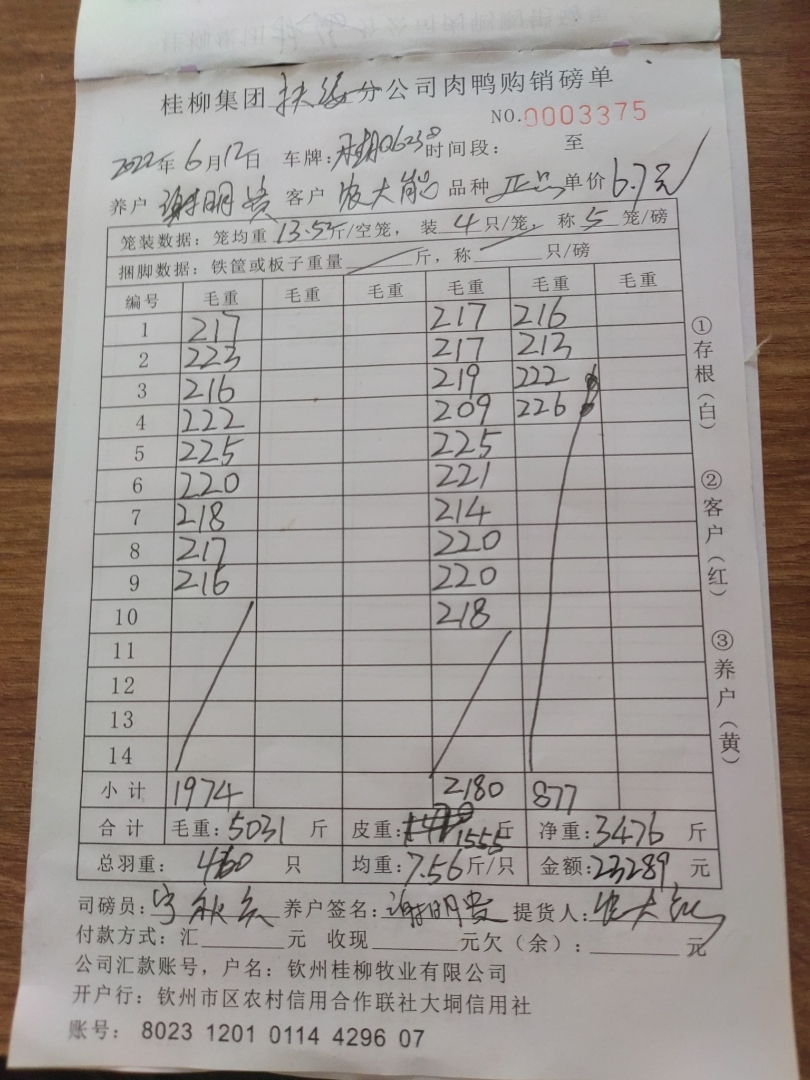 桂柳集团扶绥分公司肉鸭购销磅单
NO.0003375
2022年6月12日 车牌: 时间段: 至
养户 谢明贵 客户 农大能 品种 正品 单价 6.7元
笼装数据: 笼均重 13.52斤/空笼, 装 4 只/笼, 称 5 笼/磅
捆脚数据: 铁筐或板子重量 斤, 称 只/磅
编号 毛重 毛重 毛重 毛重 毛重 毛重
1 217 217 216
2 223 217 213
3 216 219 222
4 222 209 226
5 225 225
6 220 221
7 218 214
8 217 220
9 216 220
10 218
11
12
13
14
小计 1974 2180 877
合计 毛重: 5031 斤 皮重: 1555 斤 净重: 3476 斤
总羽重: 460 只 均重: 7.56 斤/只 金额: 23289 元
司磅员: 养户签名: 谢明贵 提货人: 农大能
付款方式: 汇 元 收现 元欠(余): 元
公司汇款账号, 户名: 钦州桂柳牧业有限公司
开户行: 钦州市区农村信用合作联社大垌信用社
账号: 8023 1201 0114 4296 07
①存根(白)
②客户(红)
③养户(黄)